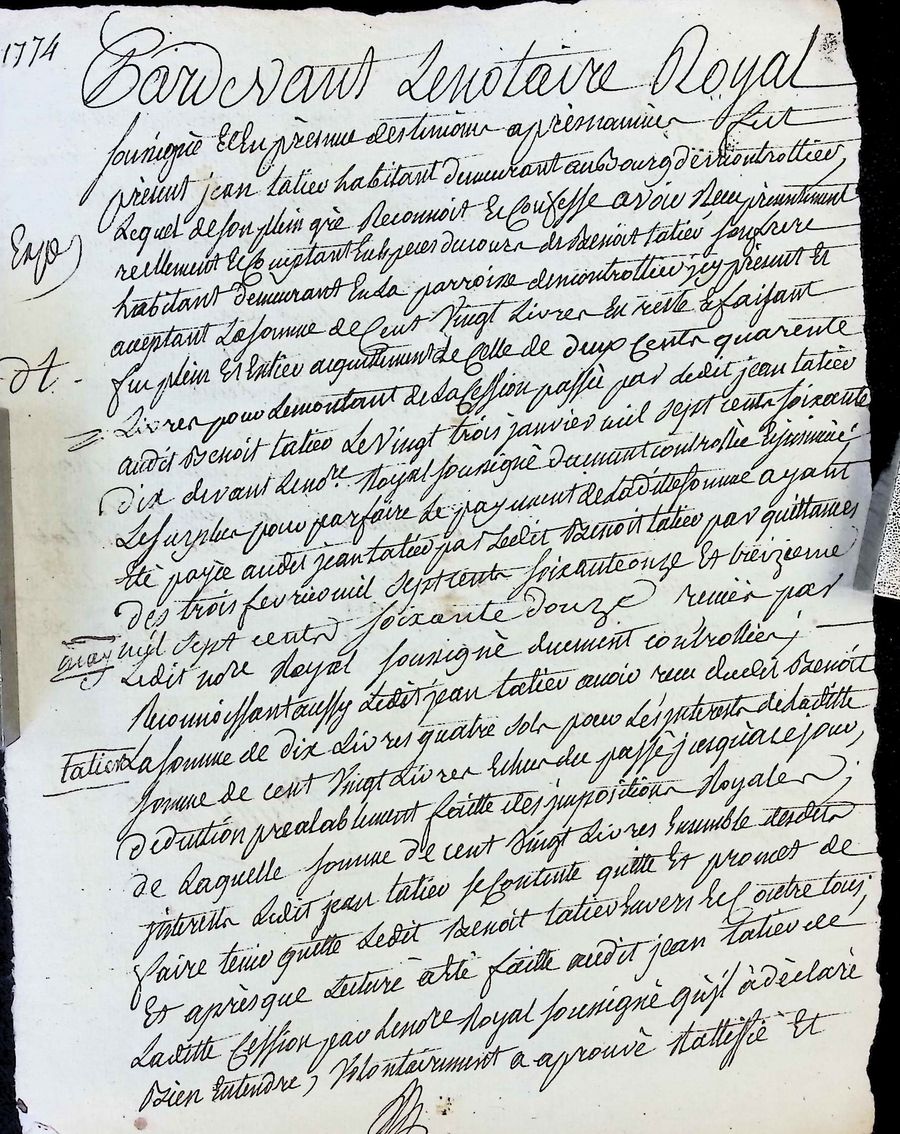 1774
Pardevant Le notaire Royal
sousigné Et En présence des temoins aprésnommés fut
présent jean tatieu habitant demeurant au Bourg de montrottier,
Lequel de son plein gré Reconnoit Et Confesse avoir Reçu présentement
reellement Et Comptant En Especes du cours de Benoit tatieu son frere
habitant demeurant En La parroisse de montrottier icy présent Et
aceptant La somme de Cent Vingt Livres En reste Et faisant
fin plein Et Entier aquittement de Celle de deux Cents quarente
Livres pour Le montant de La Cession passée par Ledit jean tatieu
audit Benoit tatieu Le Vingt trois janvier mil sept cents soixante
dix devant Le nore Royal sousigné duement controllée Et insinuée
Le surplus pour parfaire Le payement de Ladite somme ayant
été payée audit jean tatieu par Ledit Benoit tatieu par quittances
des trois fevrier mil sept cents soixante onze Et treizieme
may mil sept cents soixante douze reçües par
Ledit nore Royal sousigné duement controllées;
Reconnoissant aussy Ledit jean tatieu avoir reçu dudit Benoit
tatieu La somme de dix Livres quatre sols pour Les interests de Laditte
somme de cent Vingt Livres Echus du passé jusqu'à ce jour,
déduction préalablement faitte des impositions Royales;
de Laquelle somme de cent Vingt Livres Ensemble desdits
interests Ledit jean tatieu se Contente quitte Et promet de
faire tenir quitte Ledit Benoit tatieu Envers Et Contre tous;
Et aprésque Lecture a été faitte audit jean tatieu de
Laditte Cession par Le nore Royal sousigné qu'il a déclaré
Bien Entendre, Volontairement a aprouvé Rattiffié Et